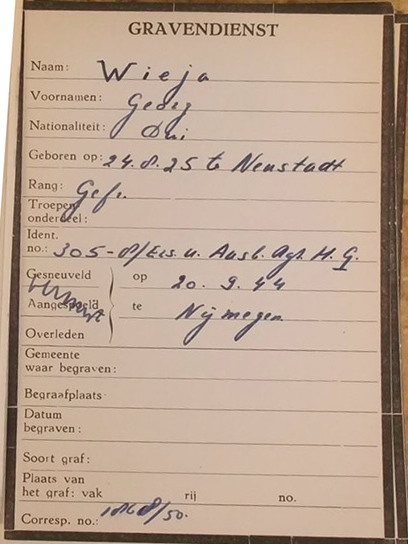 GRAVENDIENST
Naam: Wieja
Voornamen: Georg
Nationaliteit: Dui
Geboren op: 24.8.25 te Neustadt
Rang: Gefr.
Troepen-
onderdeel:
Ident.
no.: 305-8/Ers. u. Ausb. H. G.
Gesneuveld op 20.9.44
Aangespoeld te Nijmegen
Overleden
Gemeente
waar begraven:
Begraafplaats
Datum
begraven:
Soort graf:
Plaats van
het graf: vak rij no.
Corresp. no.: 1868/50.